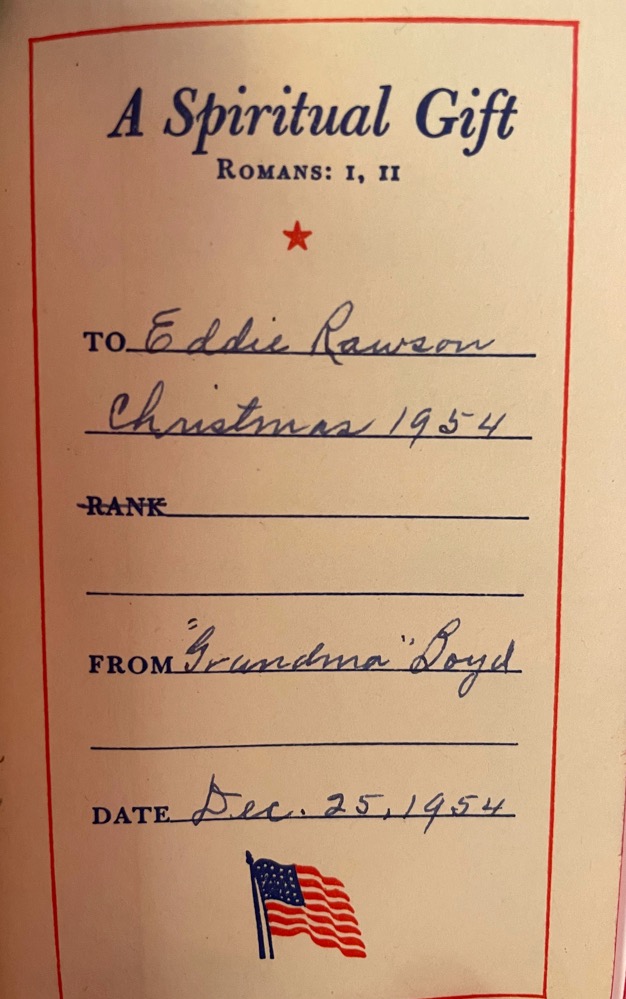 A Spiritual Gift
ROMANS: I, II
TO Eddie Rawson
Christmas 1954
RANK
FROM "Grandma" Boyd
DATE Dec. 25, 1954